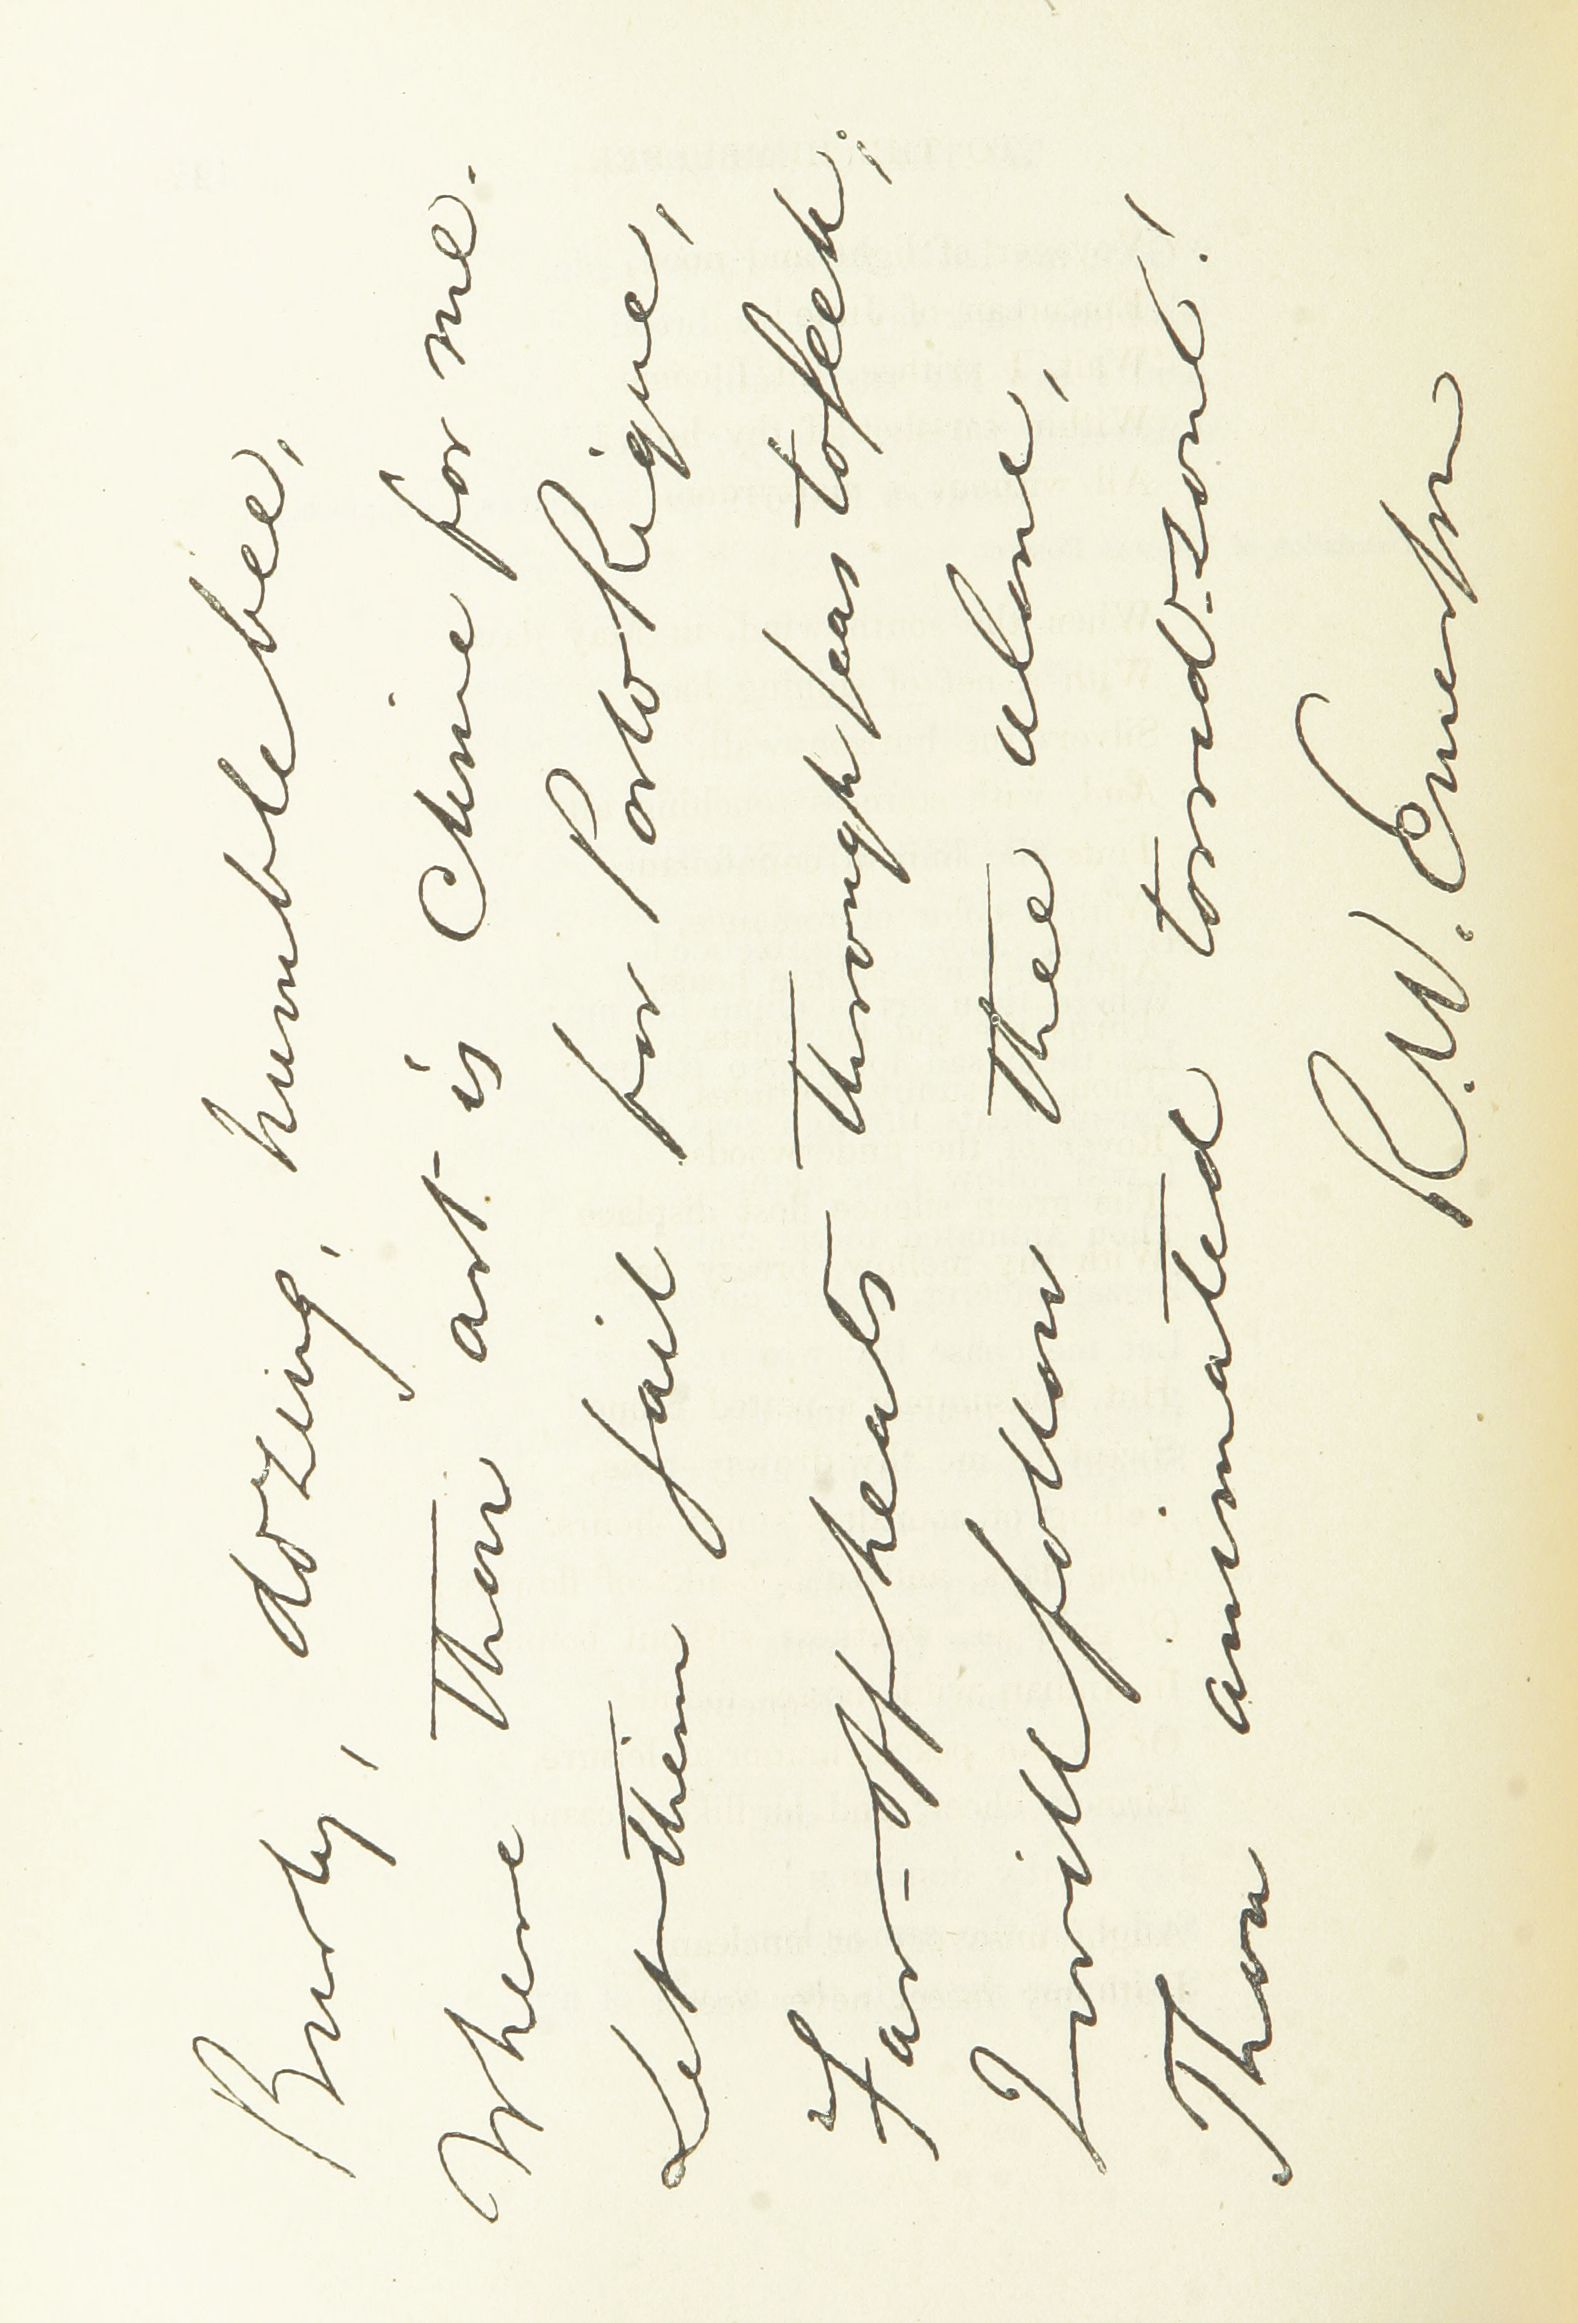 Burly, dozing, humblebee,
Where thou art is Clime for me.
Let them sail for Porto Rique,
Far-off heats through seas to seek;
I will follow thee alone,
Thou animated torrid-zone!
R.W. Emerson